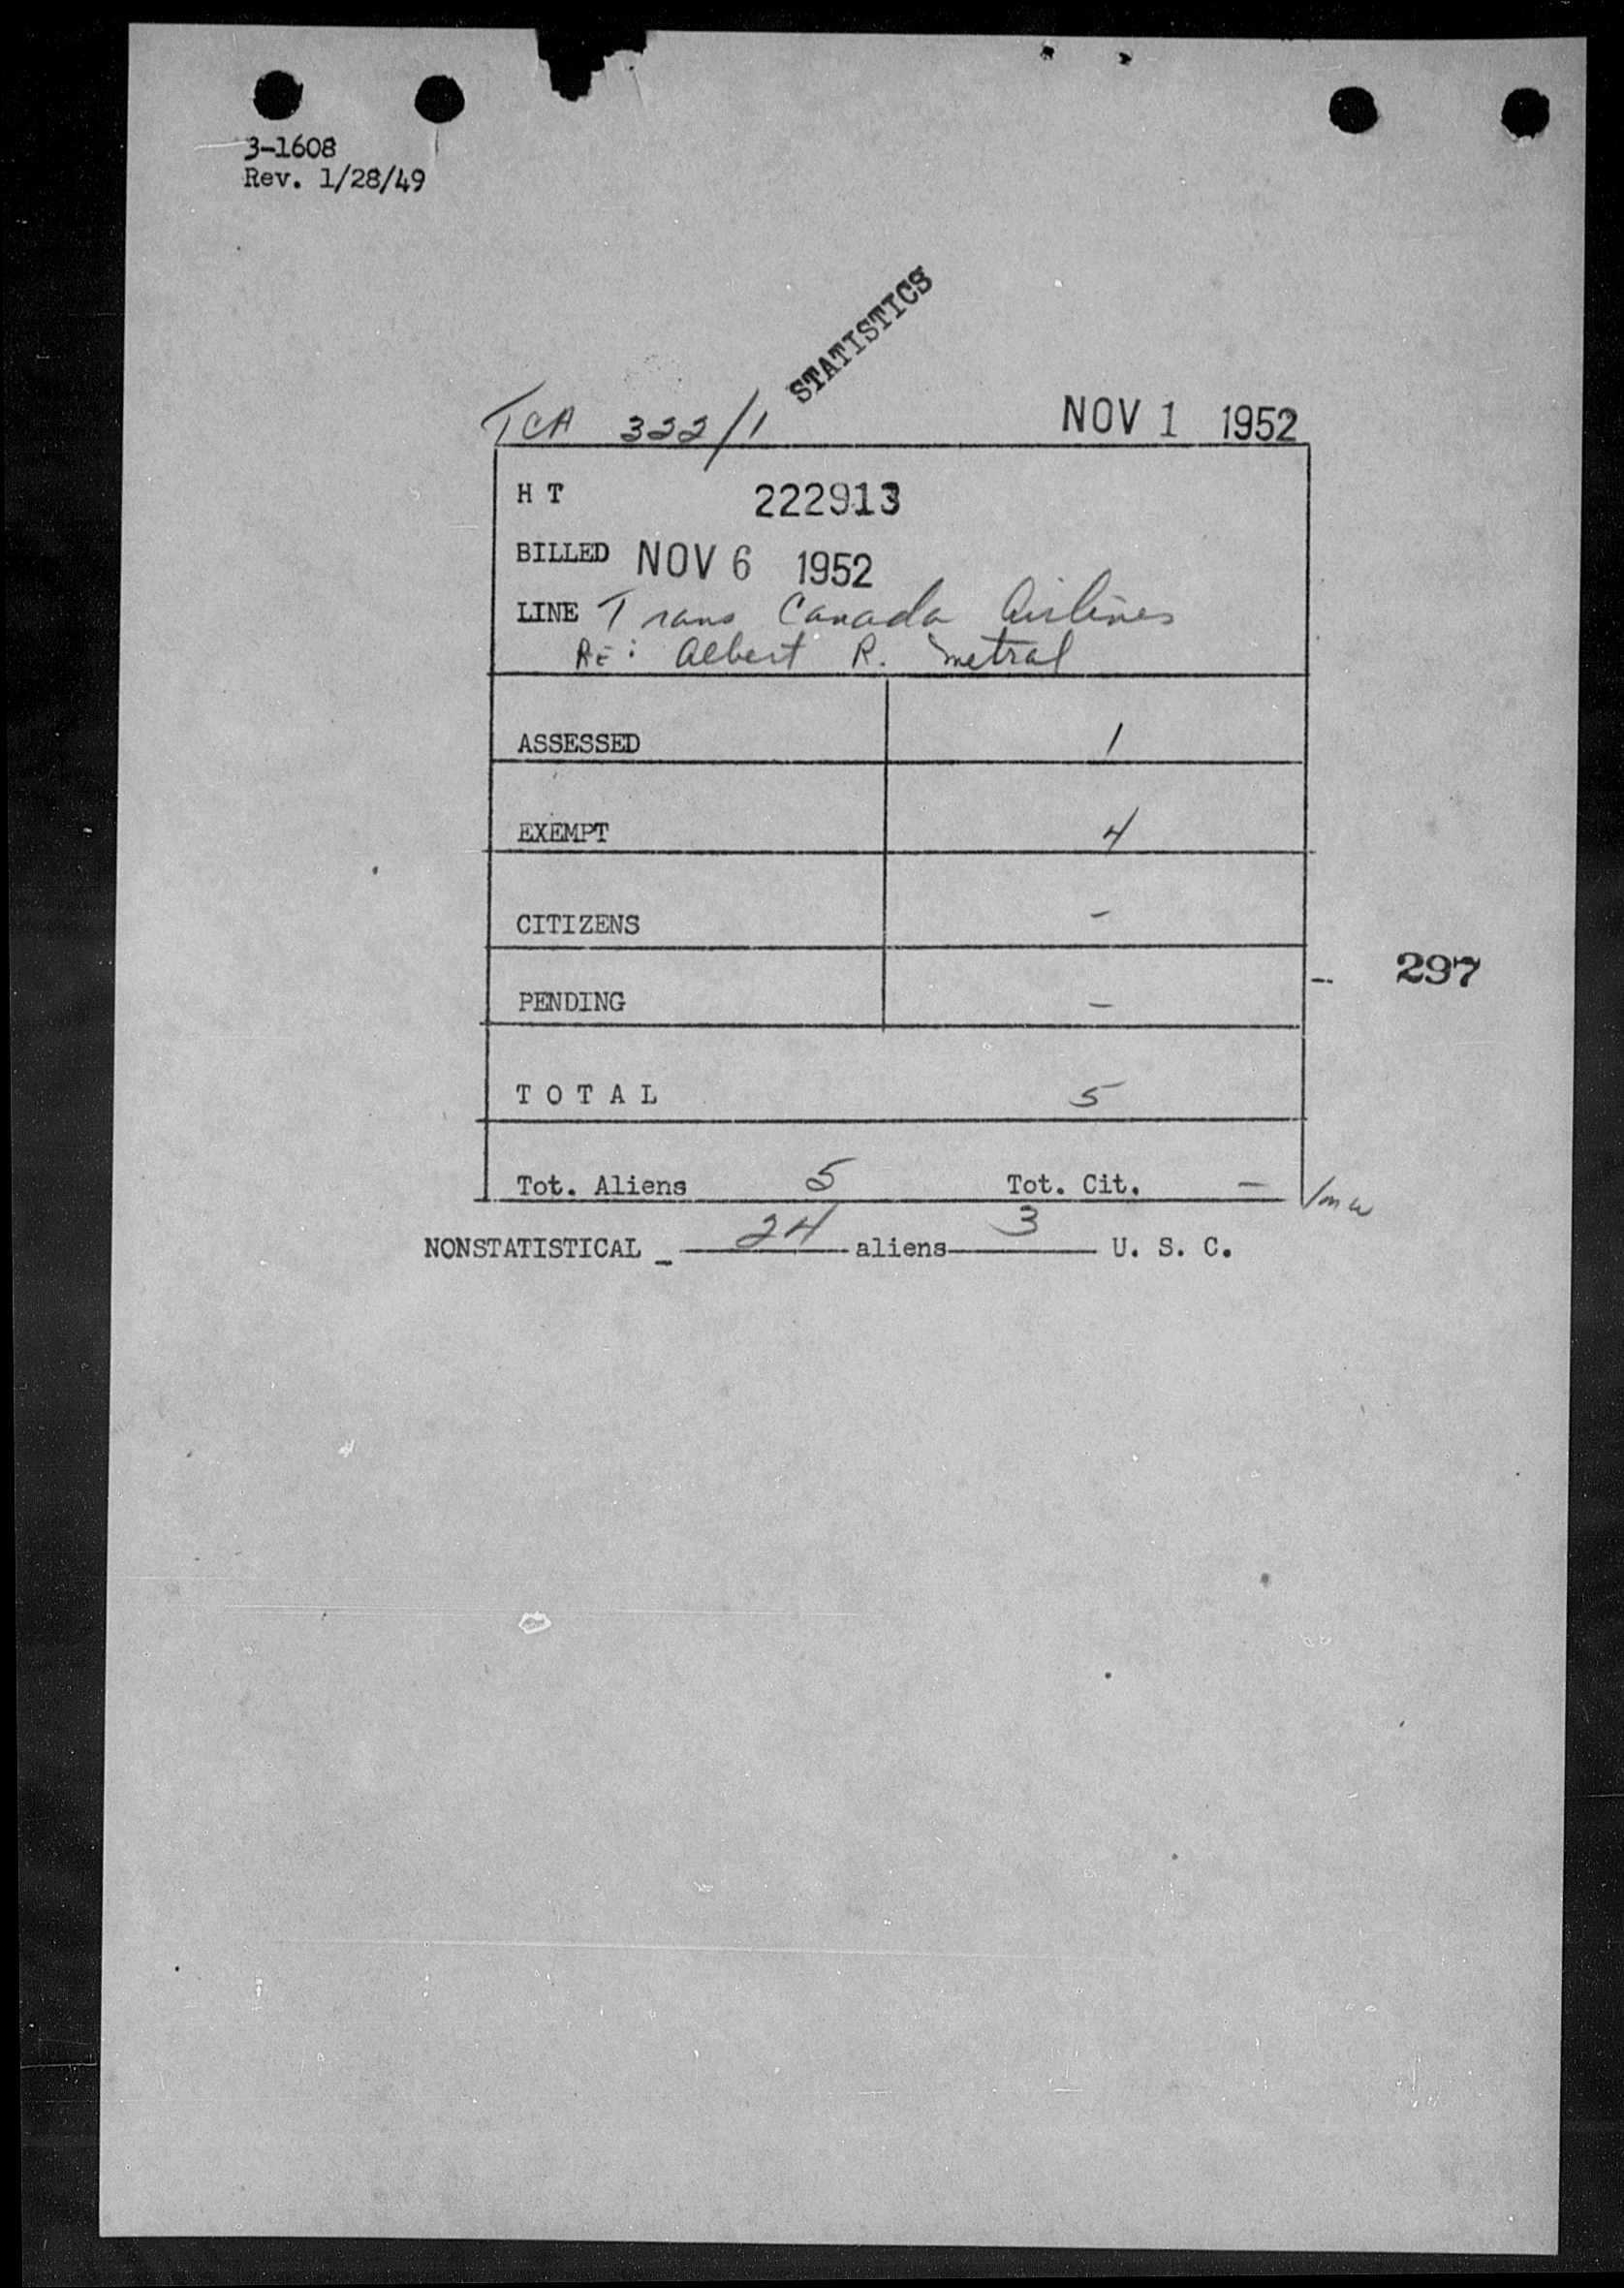 3-1608
Rev. 1/28/49
STATISTICS
TCA 322/1 NOV 1 1952
H T 222913
BILLED NOV 6 1952
LINE Trans Canada Airlines
RE: Albert R. Metral
ASSESSED 1
EXEMPT 4
CITIZENS -
PENDING -
-- 297
T O T A L 5
Tot. Aliens 5 Tot. Cit. -
NONSTATISTICAL - 24 aliens 3 U. S. C.